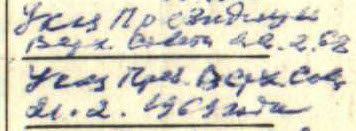 Указ Президиума
Верх. Совета 22.2.62
Указ През. Верх. Сов
21.2.1969 года